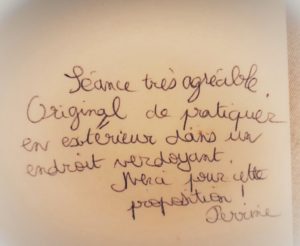 Séance très agréable.
Original de pratiquer
en extérieur dans un
endroit verdoyant.
Merci pour cette
proposition !
Perrine